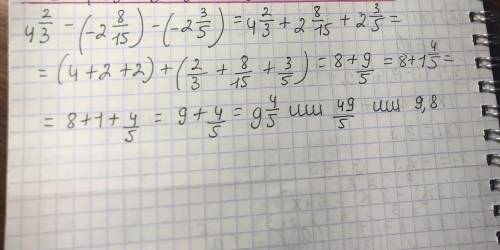 4 2/3 - (-2 8/15) - (-2 3/5) = 4 2/3 + 2 8/15 + 2 3/5 =
= (4+2+2) + (2/3 + 8/15 + 3/5) = 8 + 9/5 = 8+1 4/5 =
= 8+1+ 4/5 = 9 + 4/5 = 9 4/5 или 49/5 или 9,8